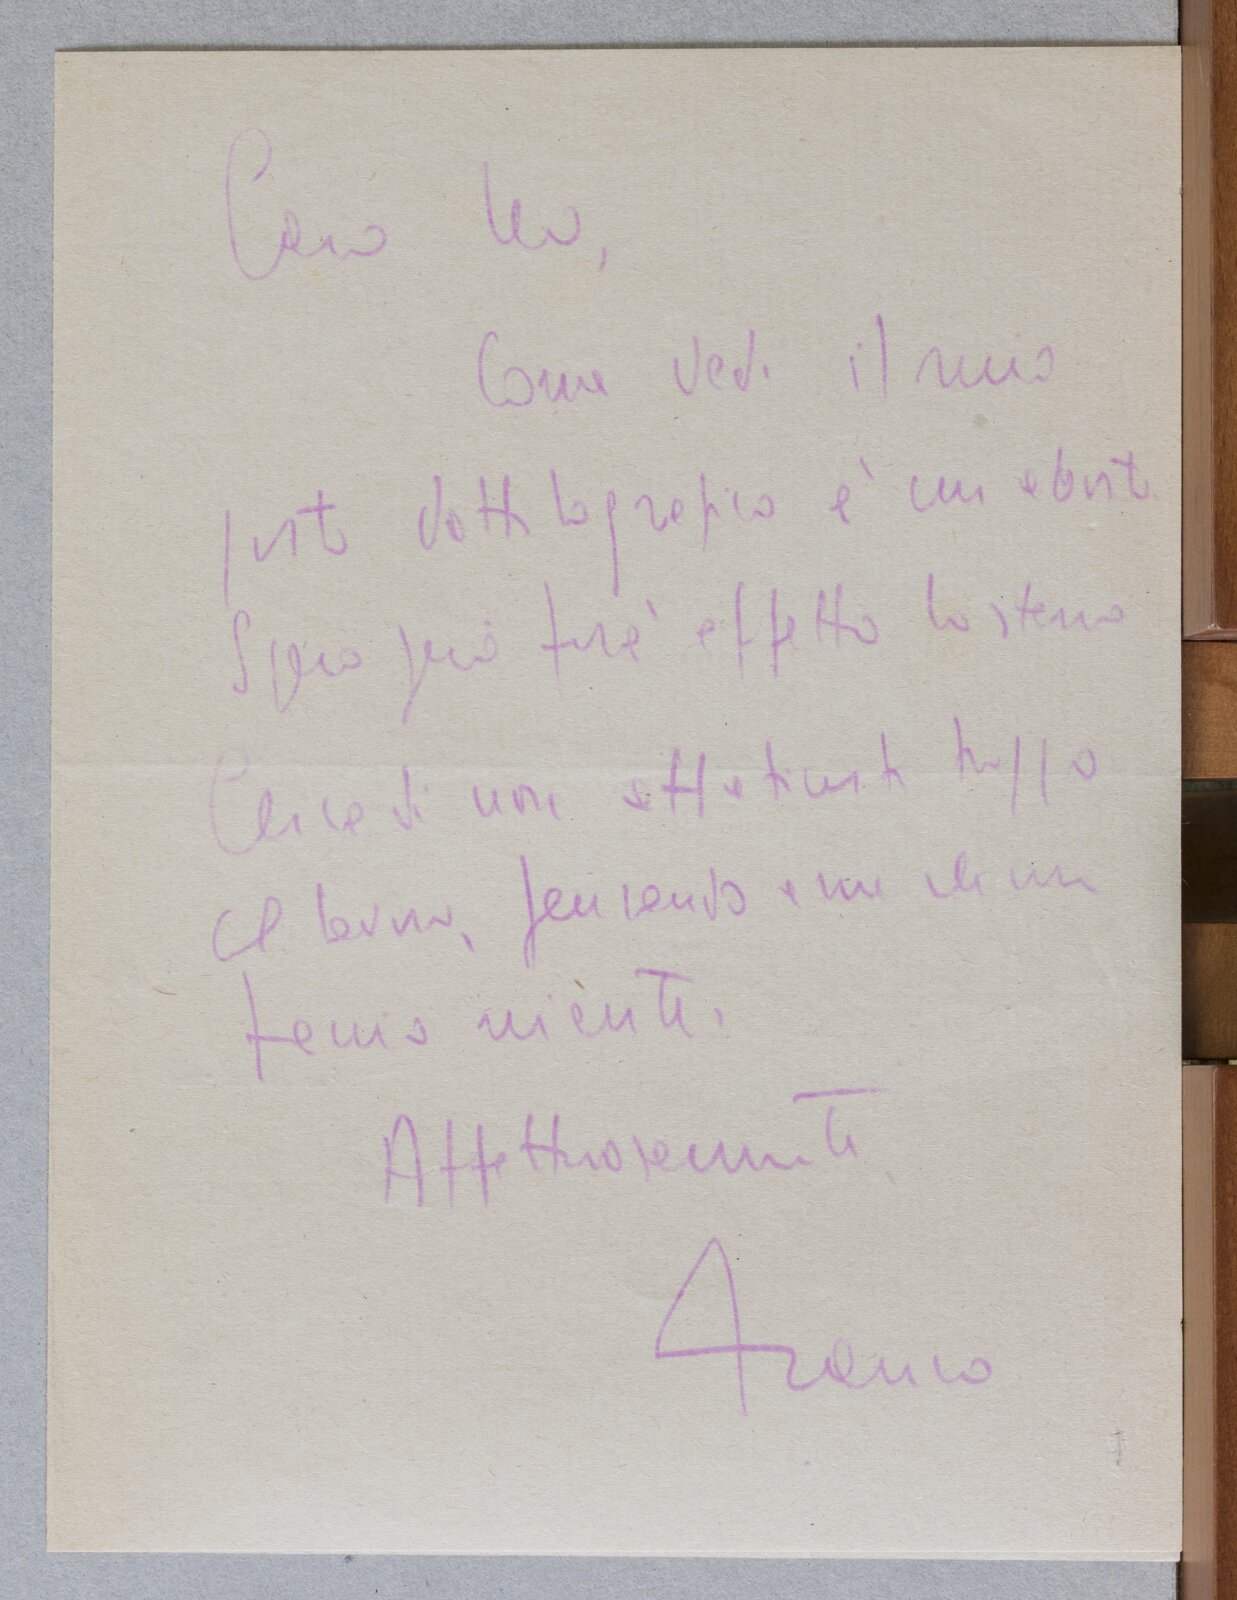 Caro Leo,
Come vedi il mio
posto dattilografico è un aborto
Spero farà effetto lo stesso
Cerca di non affaticarti troppo
al lavoro, pensando a me che non
faccio niente.
Affettuosamente
Franco